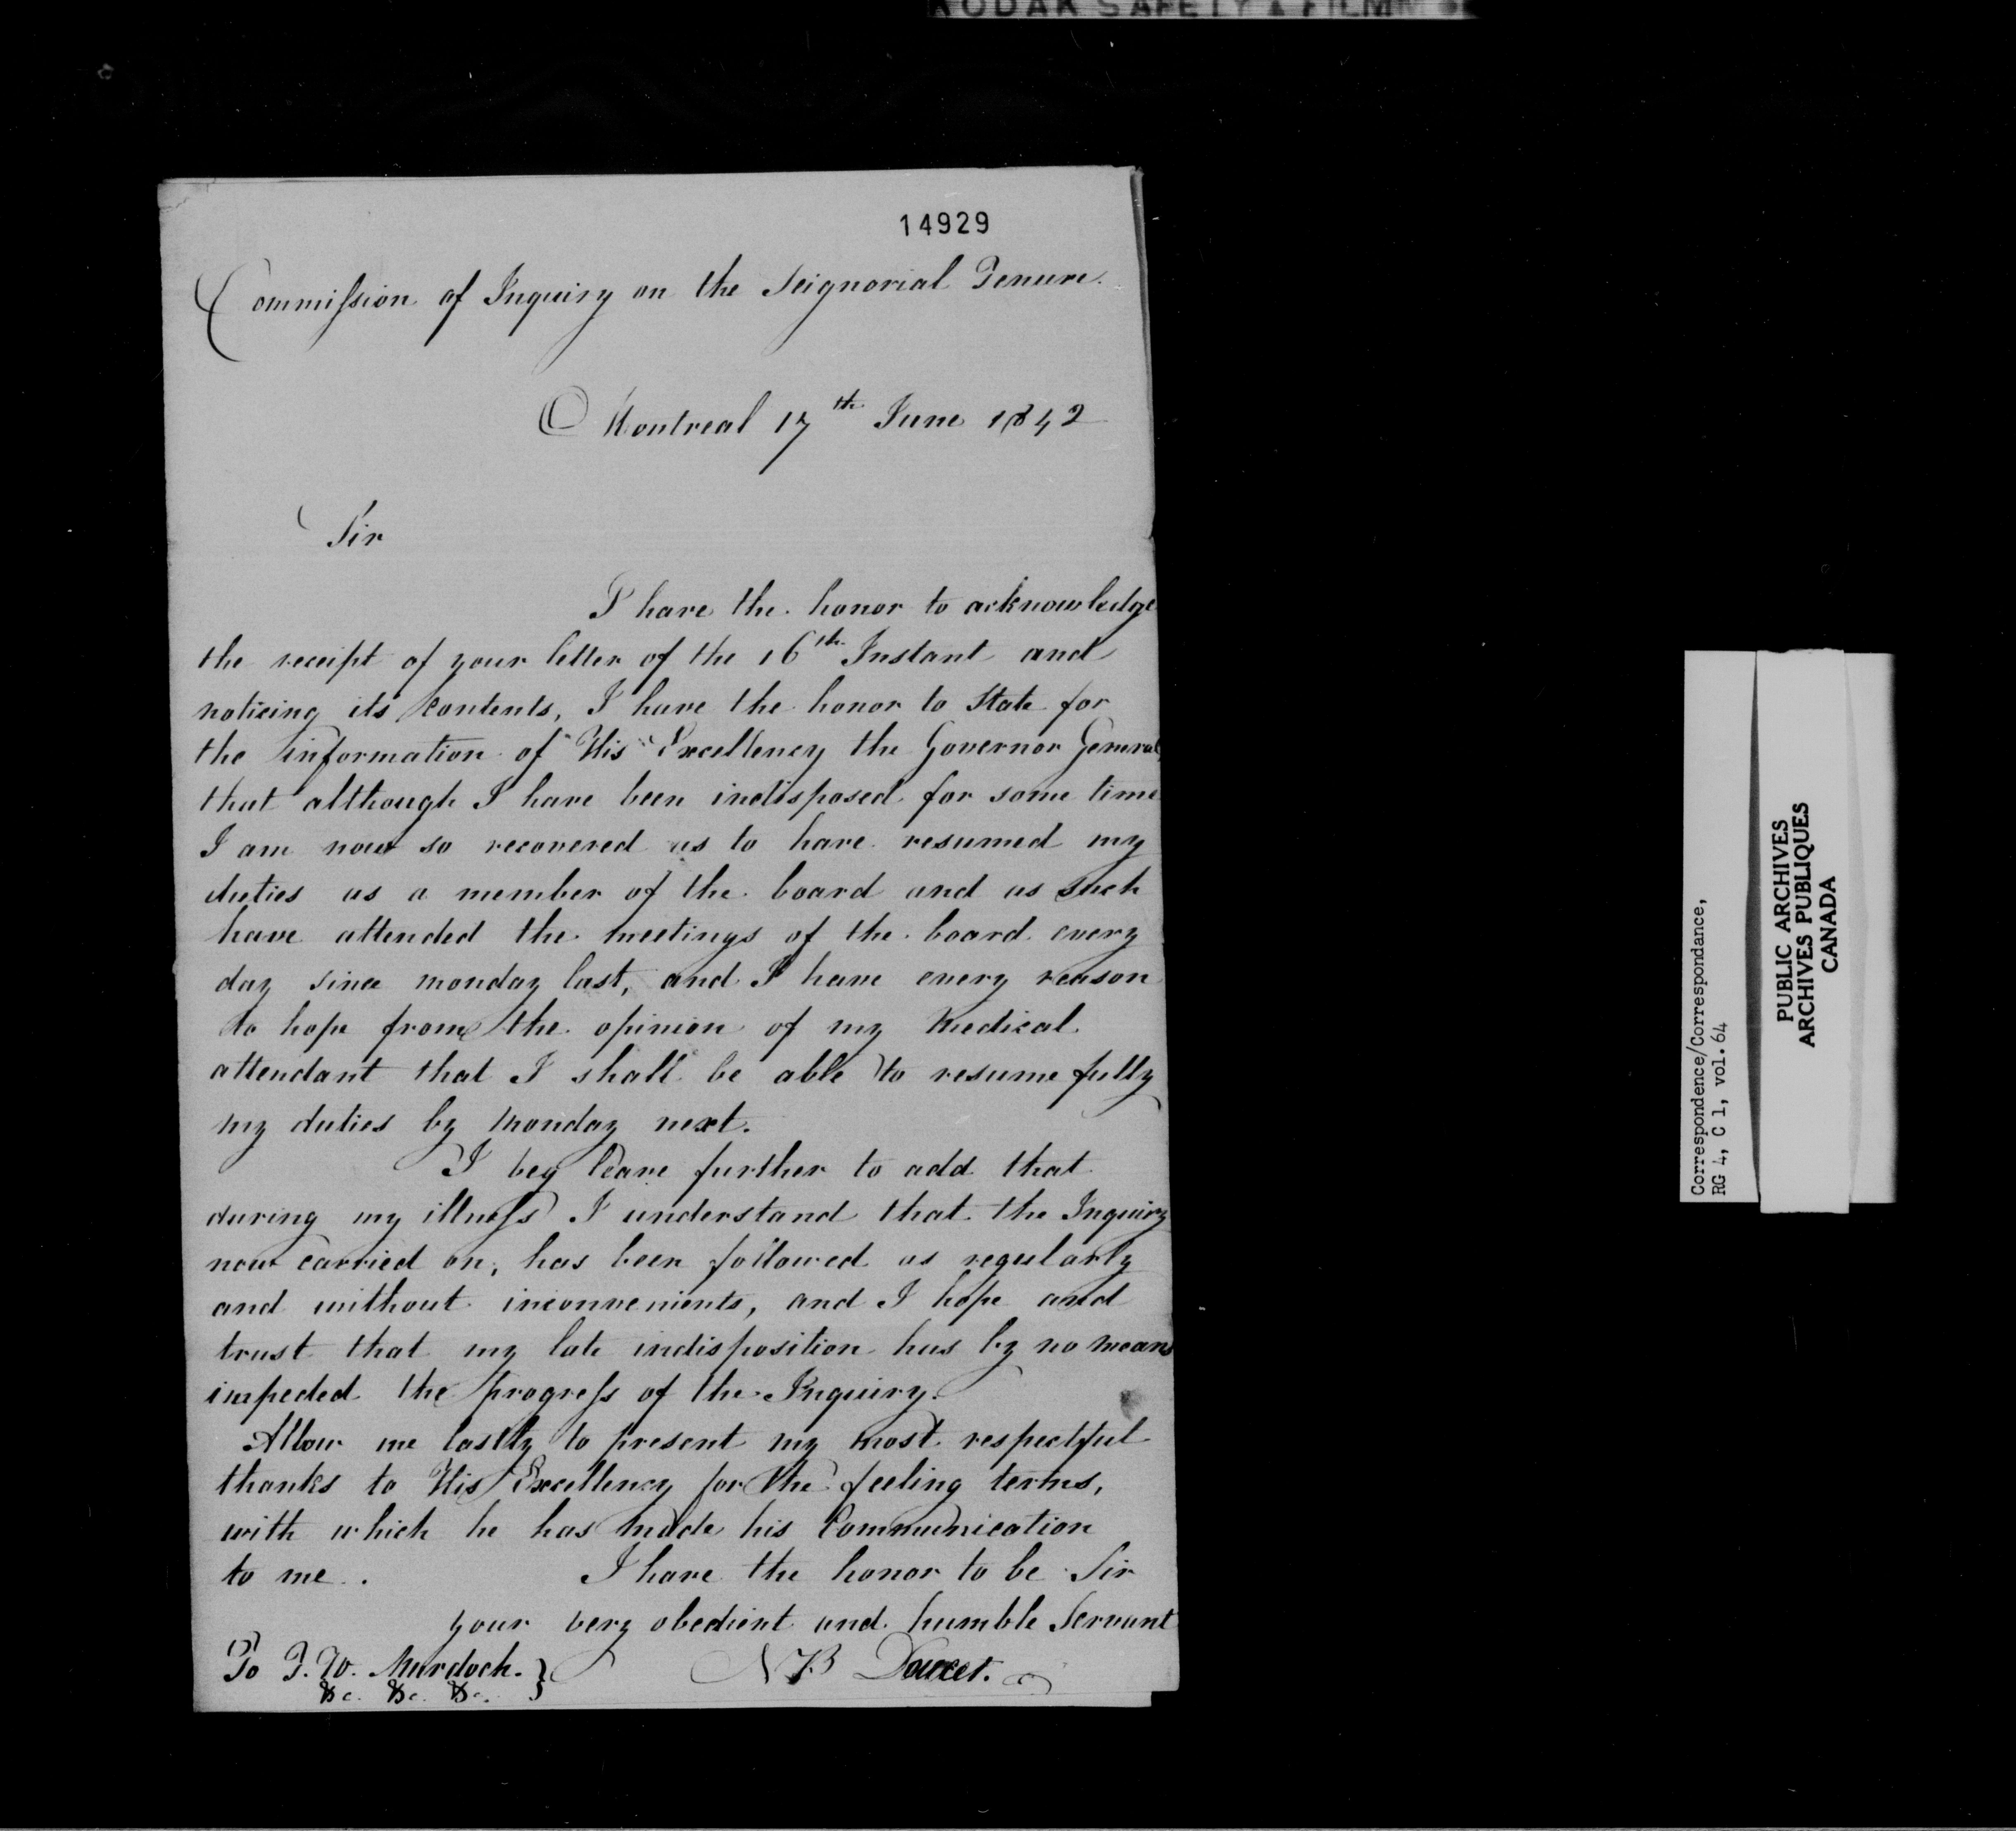 KODAK SAFETY FILM
14929
Commission of Inquiry on the Seignorial Tenure.
Montreal 17th June 1842
Sir
I have the honor to acknowledge
the receipt of your letter of the 16th Instant and
noticing its contents, I have the honor to State for
the information of His Excellency the Governor General
that although I have been indisposed for some time
I am now so recovered as to have resumed my
duties as a member of the board and as such
have attended the meetings of the board every
day since monday last, and I have every reason
to hope from the opinion of my medical
attendant that I shall be able to resume fully
my duties by monday next.
I beg leave further to add that
during my illness I understand that the Inquiry
now carried on, has been followed as regularly
and without inconvenients, and I hope and
trust that my late indisposition has by no means
impeded the progress of the Inquiry.
Allow me lastly to present my most respectful
thanks to His Excellency for the feeling terms,
with which he has made his Communication
to me. I have the honor to be Sir
your very obedient and humble Servant
To T. W. Murdoch. } NB Doucet.
&c. &c. &c.
Correspondence/Correspondance,
RG 4, C 1, vol. 64
PUBLIC ARCHIVES
ARCHIVES PUBLIQUES
CANADA